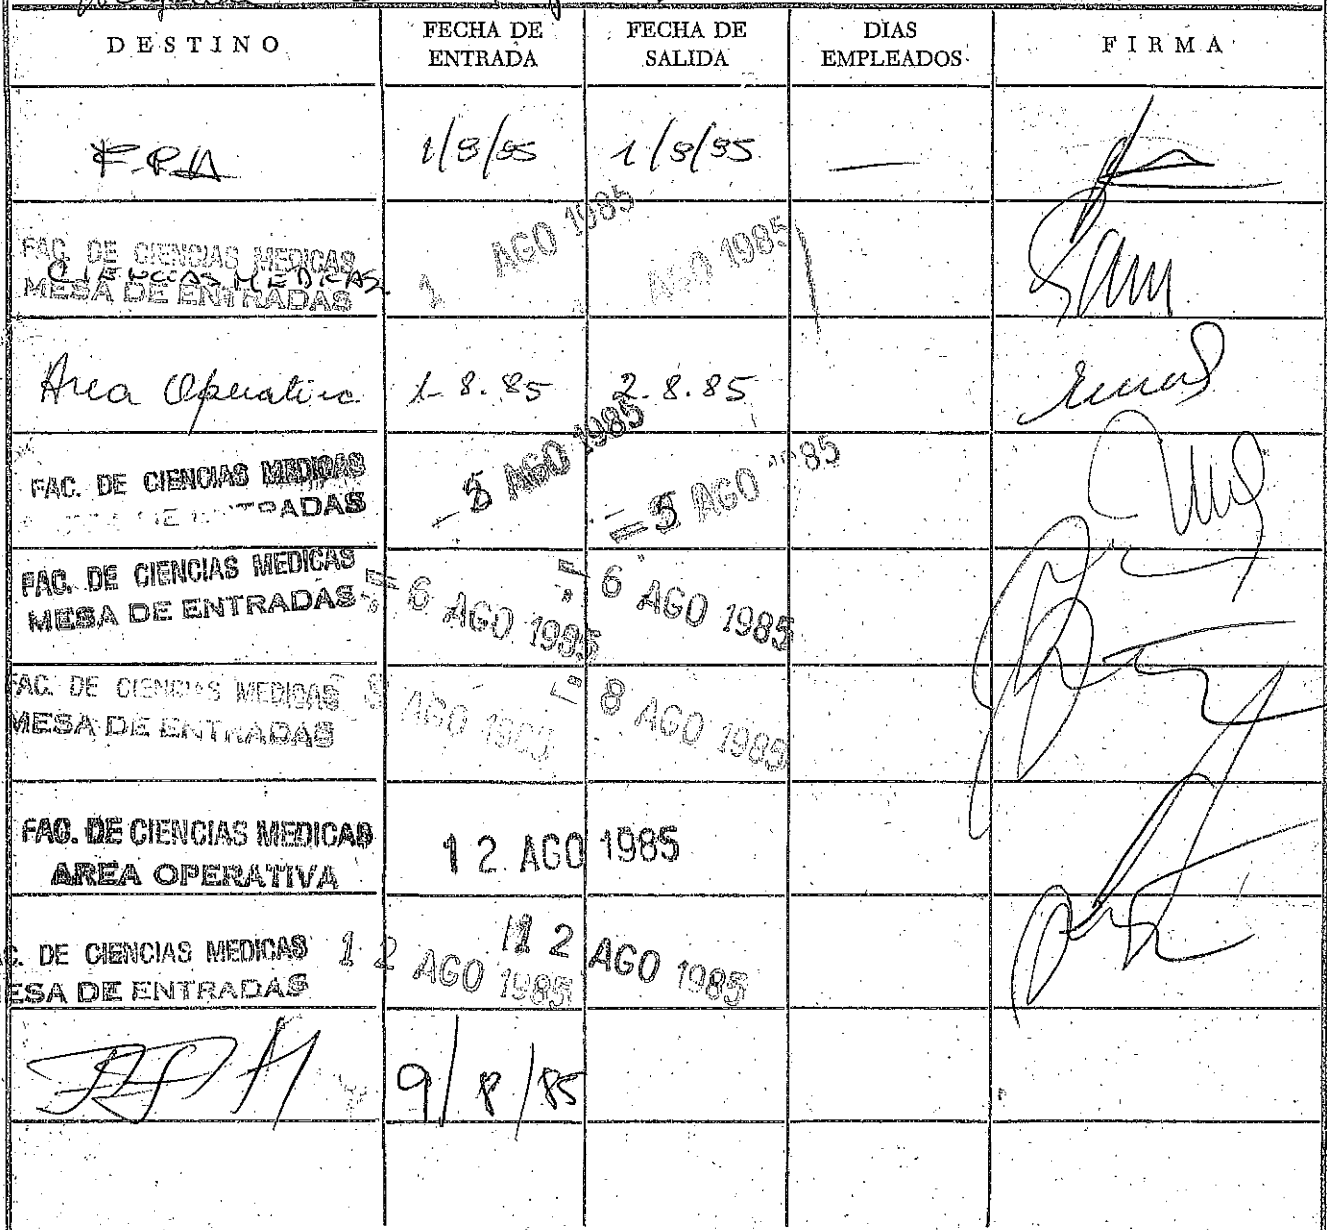 DESTINO
FECHA DE ENTRADA
FECHA DE SALIDA
DIAS EMPLEADOS
FIRMA
1/8/85
1/8/85
FAC. DE CIENCIAS MEDICAS
CIENCIAS MEDICAS
MESA DE ENTRADAS
1 AGO 1985
AGO 1985
Area Operativa
1-8.85
2.8.85
FAC. DE CIENCIAS MEDICAS
-5 AGO 1985
-5 AGO 85
FAC. DE CIENCIAS MEDICAS
MESA DE ENTRADAS
-6 AGO 1985
6 AGO 1985
FAC. DE CIENCIAS MEDICAS
MESA DE ENTRADAS
8 AGO 1985
8 AGO 1985
FAC. DE CIENCIAS MEDICAS
AREA OPERATIVA
12 AGO 1985
C. DE CIENCIAS MEDICAS
ESA DE ENTRADAS
12 AGO 1985
12 AGO 1985
9/8/85